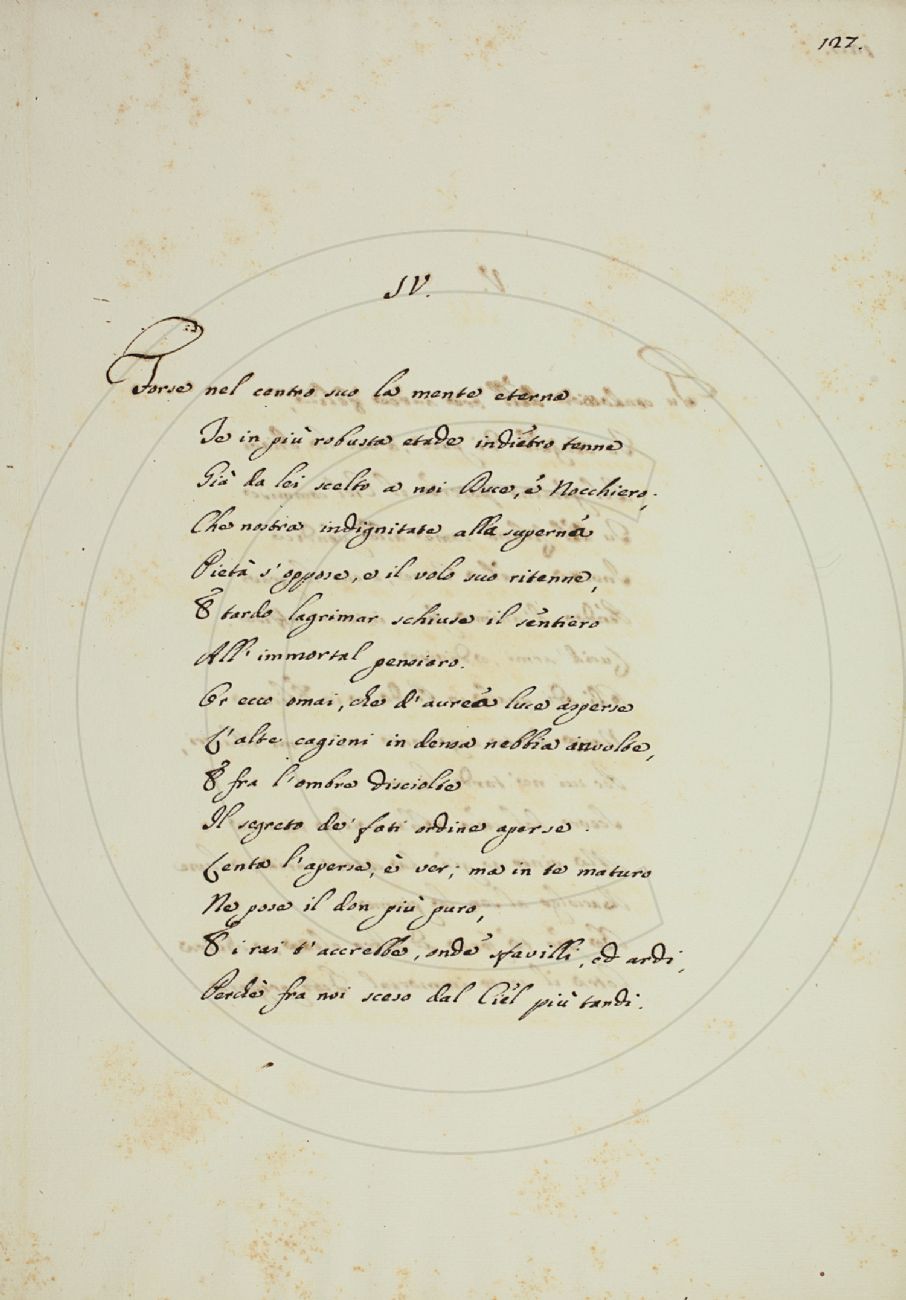 127.
IV.
Forse nel centro suo la mente eterna
Te in più robusta etade indietro tenne
Già da lei scelto a noi Duce, e Nocchiero;
Che nostra indignitate alla superna
Pietà s'oppose, e il volo suo ritenne,
E tardo lagrimar schiuse il sentiero
All'immortal pensiero.
Or ecco omai, che d'aurea luce asperse
L'alte cagioni in densa nebbia involte,
E fra l'ombre disciolte
Il segreto de' fati ordine aperse.
Lenta l'aperse, è ver; ma in te maturo
Ne pose il don più puro,
E i rai t'accrebbe, onde sfavilli, ed ardi,
Perchè fra noi sceso dal Ciel più tardi.